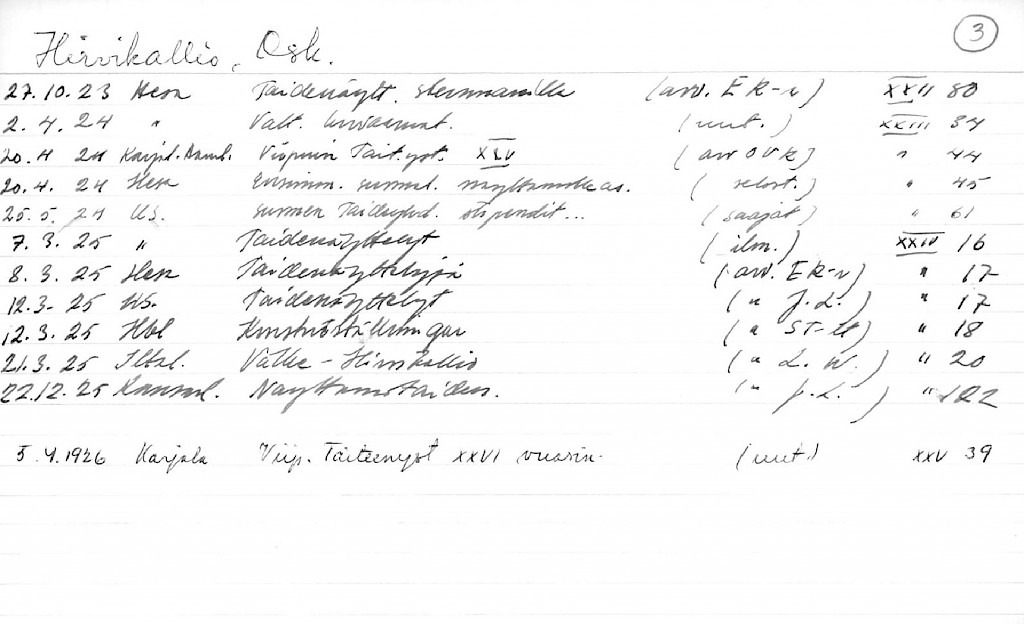 3
Hirvikallio, Osk.
27.10.23 Hesa Taidenäytt. (arv. E R-r) XXII 80
2.4.24 " Valt. (uut.) XXIII 34
20.4 24 Karjal. Aamul. Viipurin Tait.yst. XXV (arv OVR) " 44
20.4. 24 Hesa (selost.) " 45
25.5. 24 US. Suomen Taideyhd. stipendit... (saajat) " 61
7.3.25 " Taidenäyttelyt (ilm.) XXIV 16
8.3.25 Hesa Taidenäyttelyjä (arv. E R-r) " 17
12.3.25 US. Taidenäyttelyt (" J.L.) " 17
12.3.25 Hbl Konstutställningar (" ) " 18
21.3.25 Iltal. Valle - Hirvikallio (" L.W.) " 20
22.12.25 Kansanl. (" J.L.) " 122
5.4.1926 Karjala Viip. Taiteenyst XXVI vuosin. (uut.) XXV 39